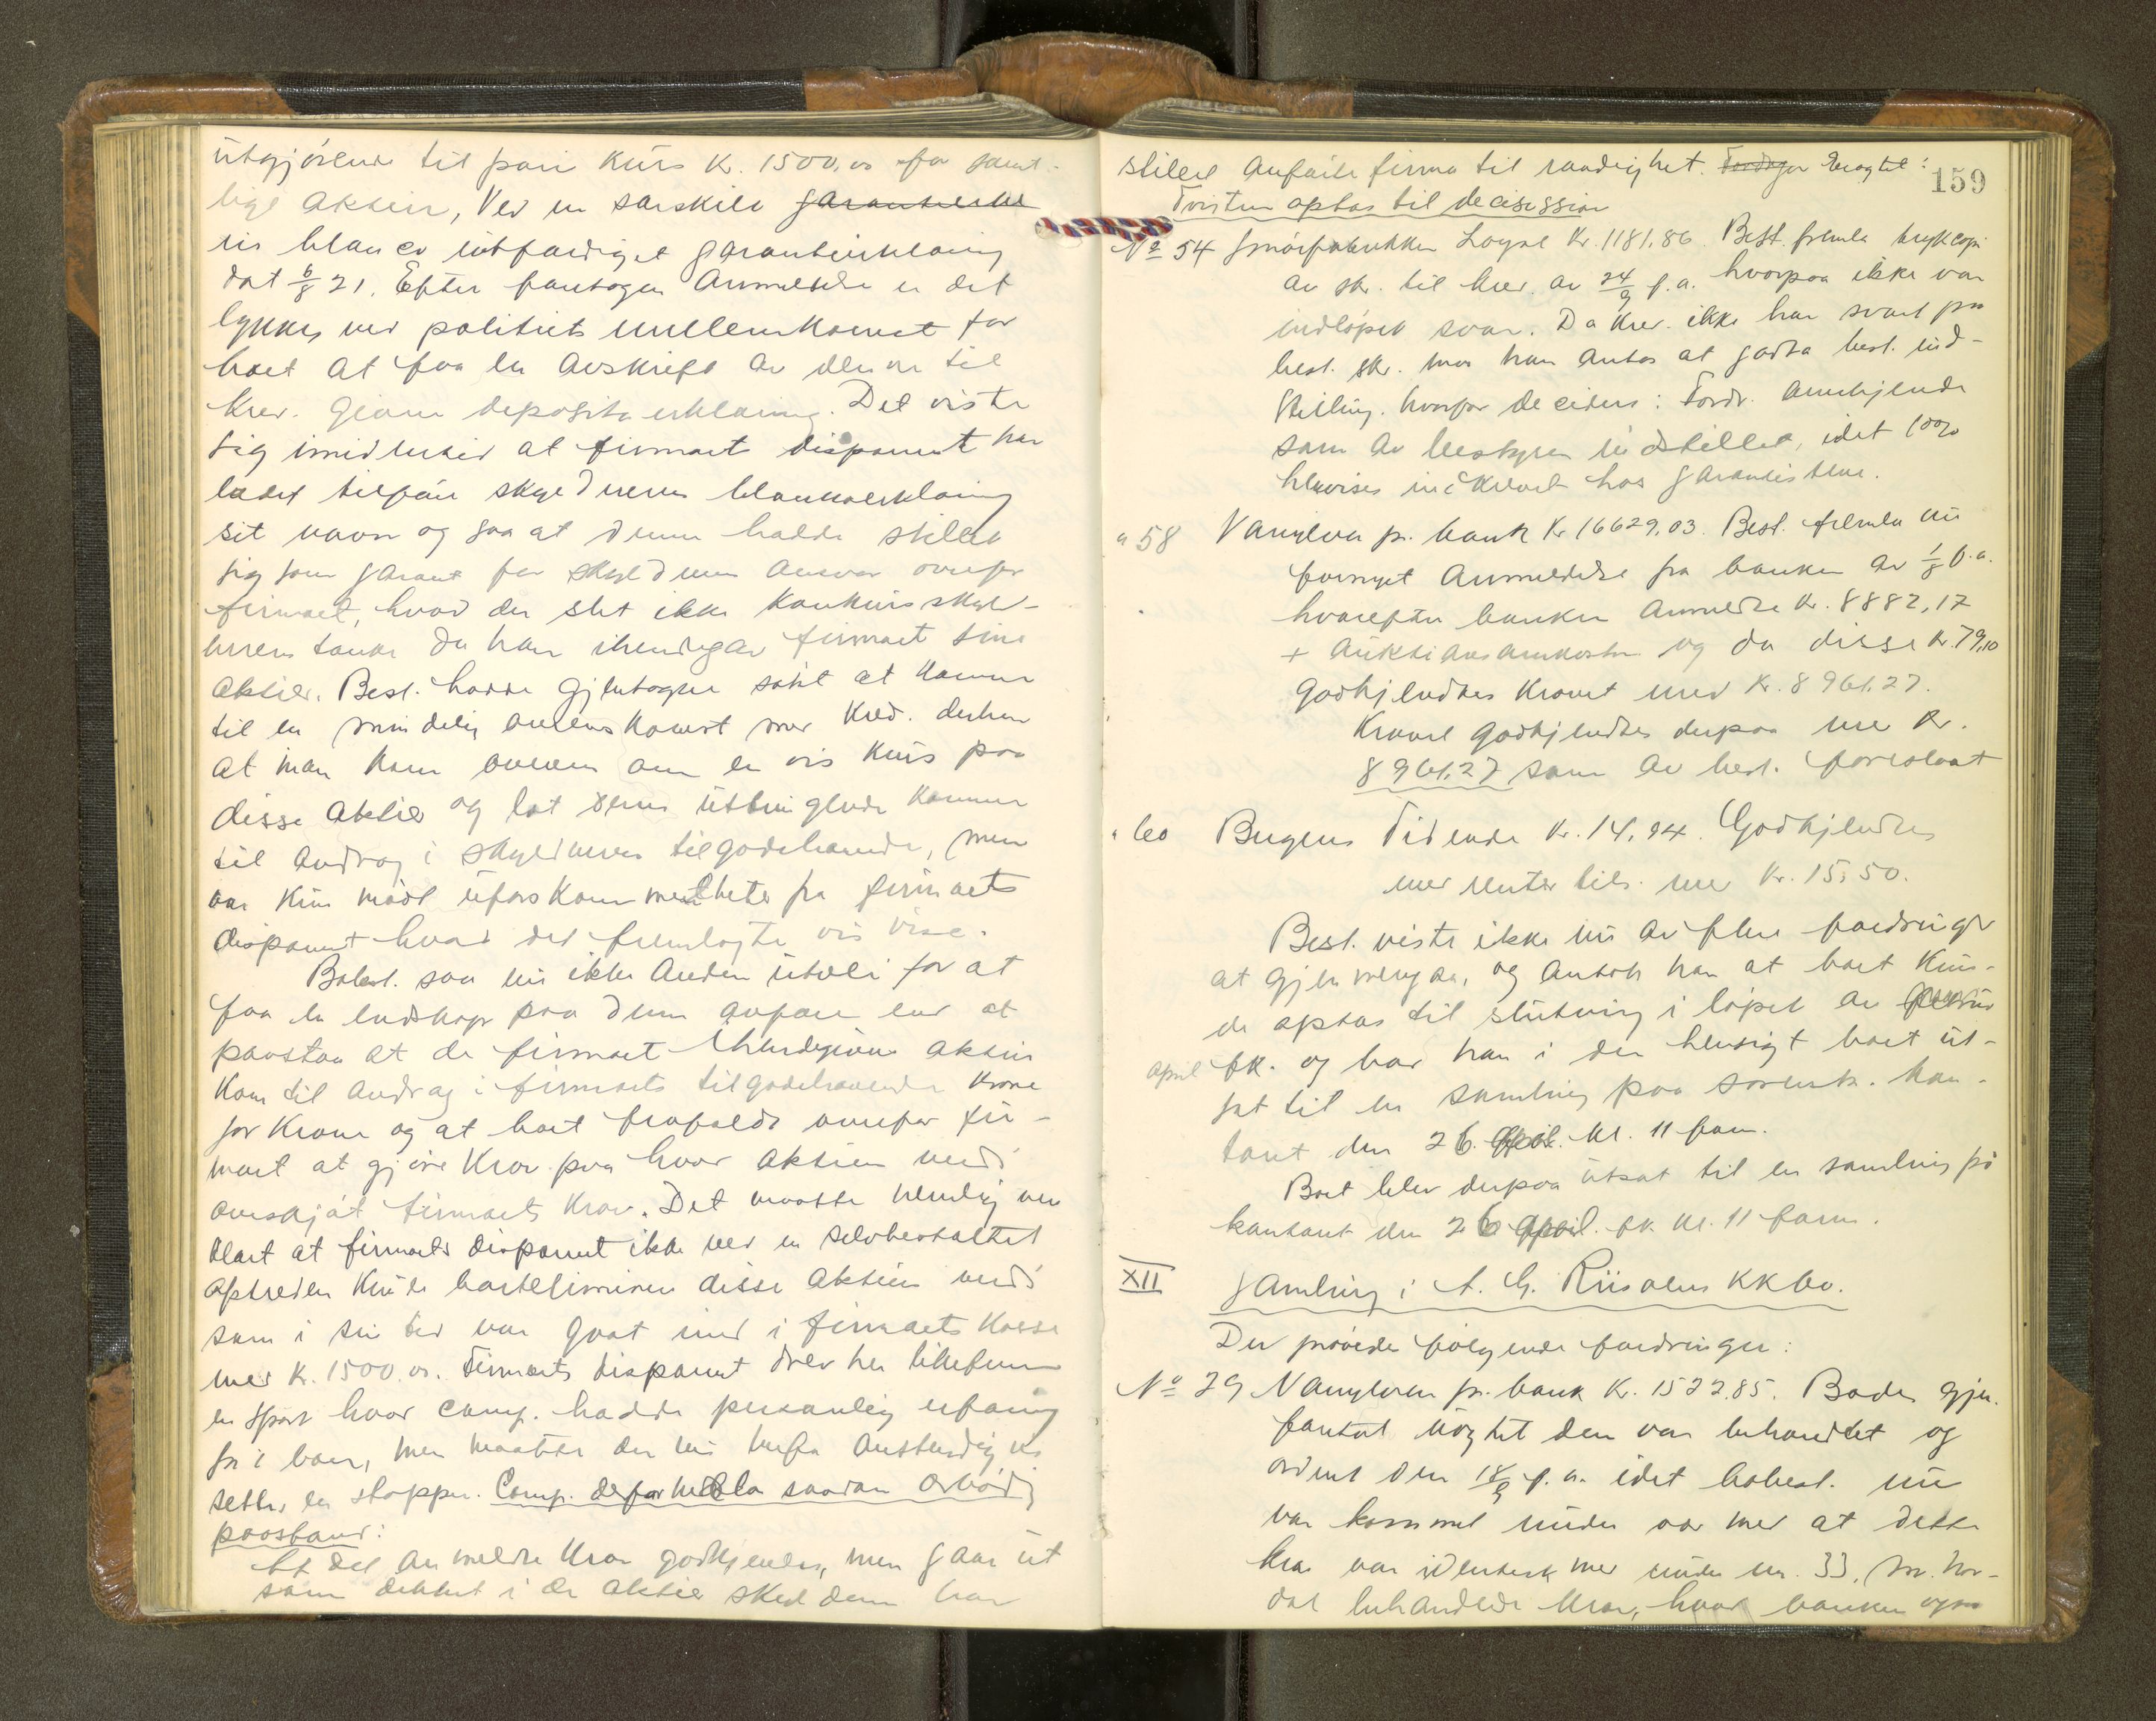 utgjørende til pari kurs Kr. 1500,00 for samt-
lige aktier, Ved en særskilt garantierkl
in blanco utfærdiget garantierklæring
dat 6/8 21. Efter foretagen anmeldelse er det
lykkes ved politiets mellemkomst for
boet at faa en avskrift av denne til
Kred. givne deposita erklæring. Det viste
sig imidlertid at firmaet disponent har
ladet tilføie skyldneren blancoerklæring
sit navn og saa at denne hadde stillet
sig som garant for skyldneren ansvar overfor
firmaet, hvad der slet ikke konkursskyld-
nerens tanke da han ihendegav firmaet sine
aktier. Best. hadde gjentagne søkt at komme
til en mindelig overenskomst med Kred. derhen
at man kom overens om en vis kurs paa
disse aktier og lot denne utbringende komme
til avdrag i skyldneren tilgodehavende, men
har kun mødt uforskammetheter fra firmaets
disponent hvad det fremlagte vil vise.
Bobest. saa nu ikke anden utvei for at
faa en endskap paa denne affære end at
paastaa at de firmaet ihendegivne aktier
kom til avdrag i firmaets tilgodehavende krone
for krone og at boet frafaldt overfor fir-
maet at gjøre krav paa hvad aktiers verdi
overskjøt firmaets krav. Det maatte nemlig være
klart at firmaets disponent ikke ved en selvbestaltet
optræden kunde bortelliminere disse aktiers verdi
som i sin tid var gaat ind i firmaets kasse
med Kr. 1500.00. Firmaets disponent drev her
en sport hvad comp. hadde personlig erfaring
for i boer, men maatte der nu herfra anstendigvis
settes en stopper. Comp. derfor nedla saadan
paastand:
At det anmeldte krav godkjendes, men gaar ut
som dækket i de aktier skyldneren har
159
stillet anførte firma til raadighet.
Tvisten optas til decisission
No 54 Smørfabrikken Løgse Kr. 1181,86. Best. fremla trykkopi
av skr. til kred. av 24/9 f.a. hvorpaa ikke var
indløpet svar. Da kred. ikke har svart paa
best. skr. maa han antas at godta best. ind-
stilling. hvorfor decideres: Fordr. anerkjendes
som av bestyrer indstillet, idet 100%
henvises inddrevet hos garantistene.
" 58 Vanylven pr. bank Kr 16629,03. Best. fremla nu
fornyet anmeldelse fra banken av 1/8 f.a.
hvorefter banken anmeldte Kr. 8882,17
+ auktionsomkostn. og da disse Kr. 79,10
godkjendtes kravet med Kr. 8961,27.
Kravet godkjendtes derpaa med Kr.
8961,27 som av best. foreslaat
" 60 Bergens Tidende Kr. 14,94. Godkjendtes
med renter tils. med Kr. 15,50.
Best. viste ikke nu av flere fordringer
at gjennemgaa, og antok han at boet kun-
de optas til slutning i løpet av
april fk. og bad han i den hensigt boet ut-
sat til en samling paa sorensk. kon-
toret den 26. april. kl. 11 form.
Boet blev derpaa utsat til en samling på
kontoret den 26 april. fk kl. 11 form.
XII Samling i A. G. Riisøens KKbo.
Der prøvedes følgende fordringer:
No 29 Vanylven pr. bank Kr. 1522.85. Bades gjen-
fortat uagtet den var behandlet og
ordnet den 18/9 f.a. idet bobest. nu
var kommet under veir med at dette
krav var identisk med under nr. 33,
dal behandlede krav, hvor banken ogsaa